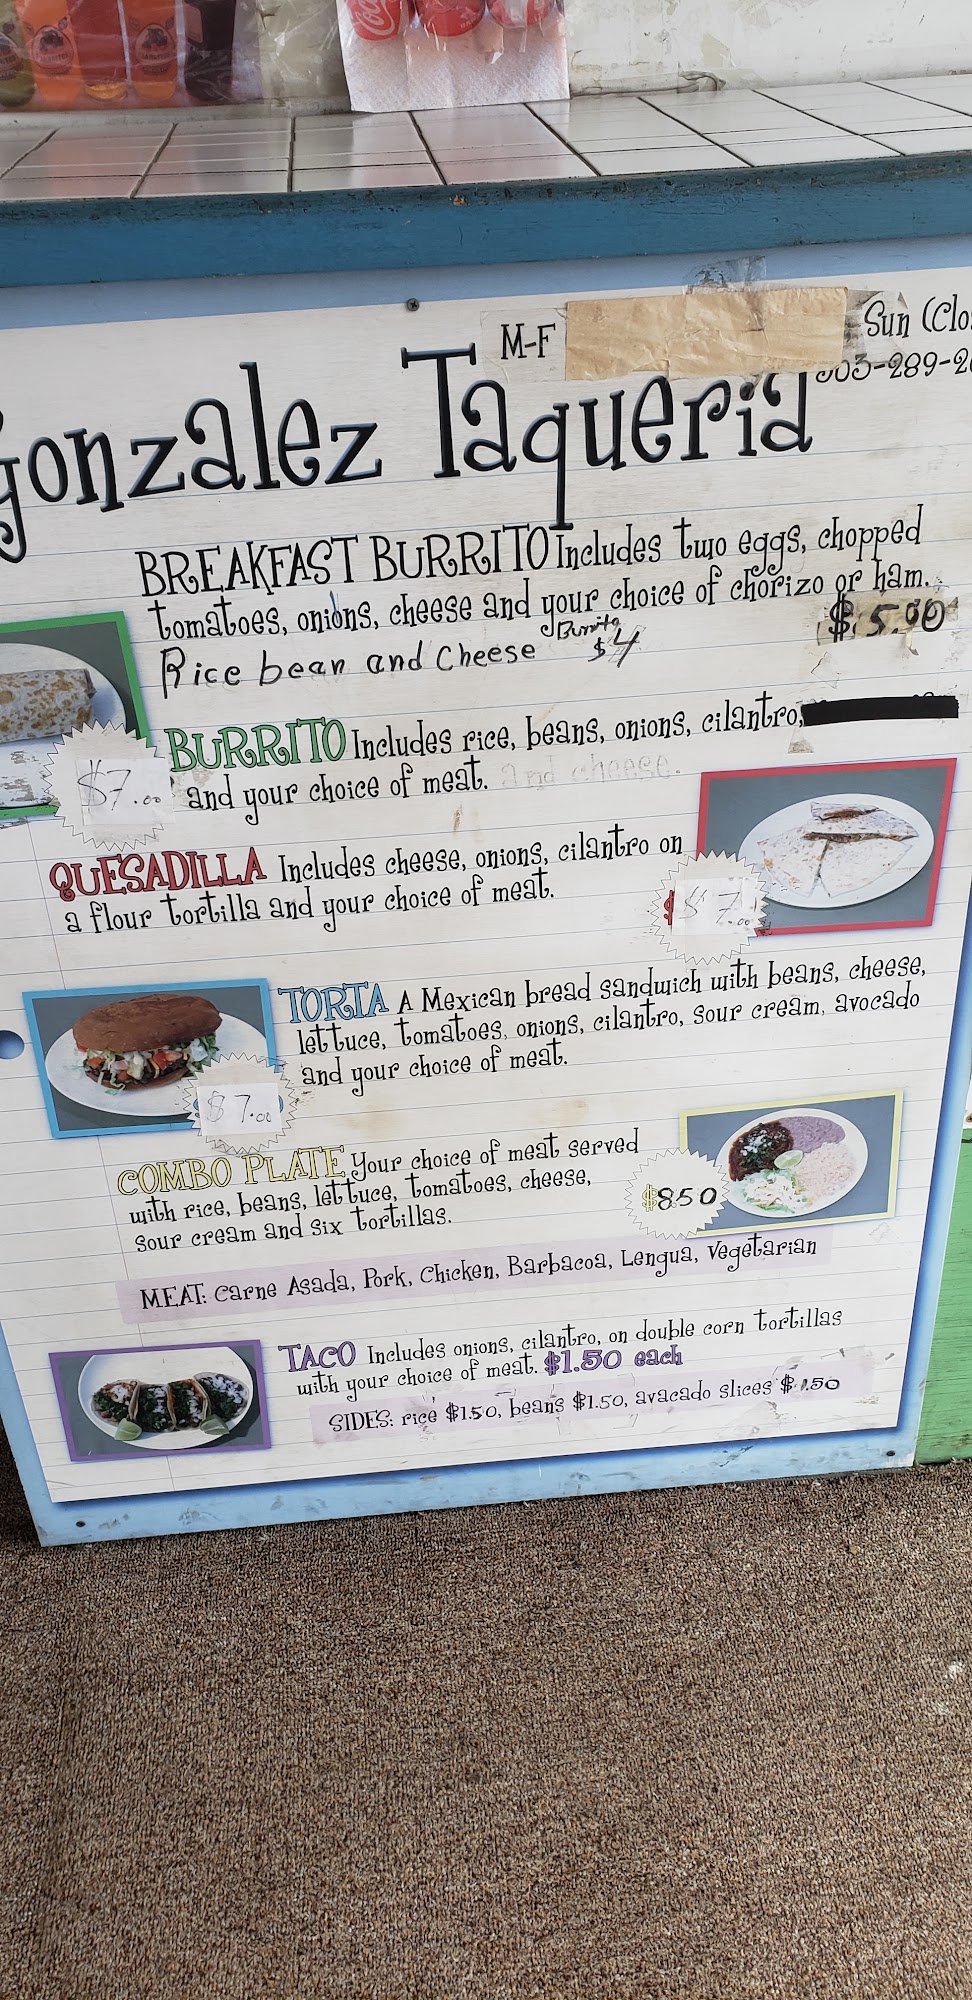 M-F
Sun
503-289-
Gonzalez Taqueria
BREAKFAST BURRITO Includes two eggs, chopped
tomatoes, onions, cheese and your choice of chorizo or ham.
$5.00
Rice bean and Cheese Burrito $4
BURRITO Includes rice, beans, onions, cilantro,
and your choice of meat. and cheese.
$7.00
QUESADILLA Includes cheese, onions, cilantro on
a flour tortilla and your choice of meat.
$7.00
TORTA A Mexican bread sandwich with beans, cheese,
lettuce, tomatoes, onions, cilantro, sour cream, avocado
and your choice of meat.
$7.00
COMBO PLATE Your choice of meat served
with rice, beans, lettuce, tomatoes, cheese,
sour cream and six tortillas.
$8.50
MEAT: Carne Asada, Pork, Chicken, Barbacoa, Lengua, Vegetarian
TACO Includes onions, cilantro, on double corn tortillas
with your choice of meat. $1.50 each
SIDES: rice $1.50, beans $1.50, avacado slices $1.50